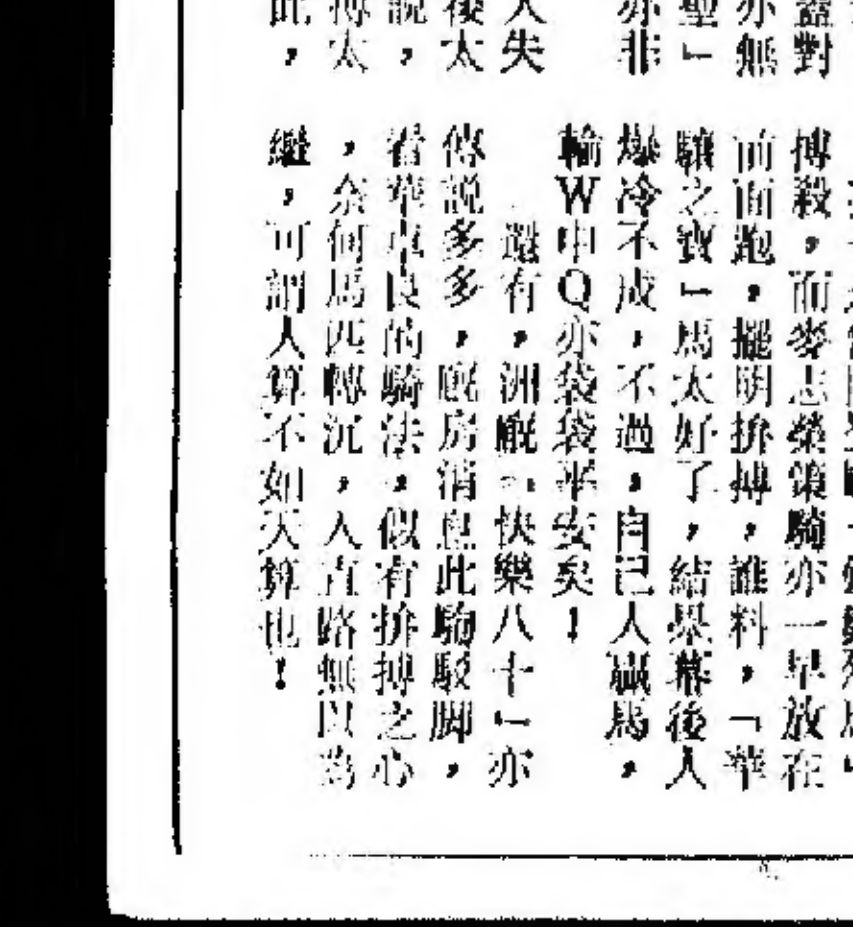 蓋對
亦無
聖」
亦非
人失
後太
說，
搏太
此，
搏殺，而麥志榮策騎亦一早放在
前面跑，擺明拚搏，誰料，「華
驤之寶」馬太好了，結果幕後人
爆冷不成，不過，自己人贏馬，
輸W中Q亦袋袋平安矣！
還有，洲廐「快樂八十」亦
傳説多多，廐房消息此駒駁脚，
看華卓良的騎法，似有拚搏之心
，奈何馬匹轉沉，入直路無以為
繼，可謂人算不如天算也！